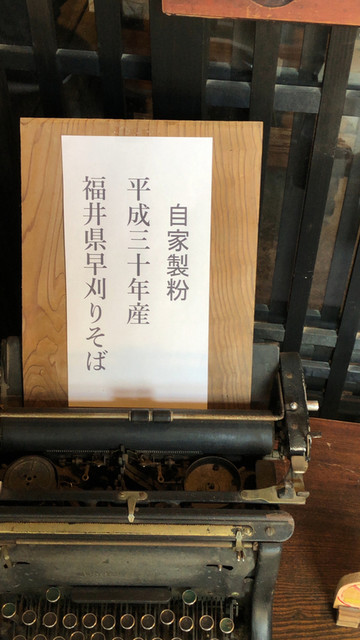 自家製粉
平成三十年産
福井県早刈りそば